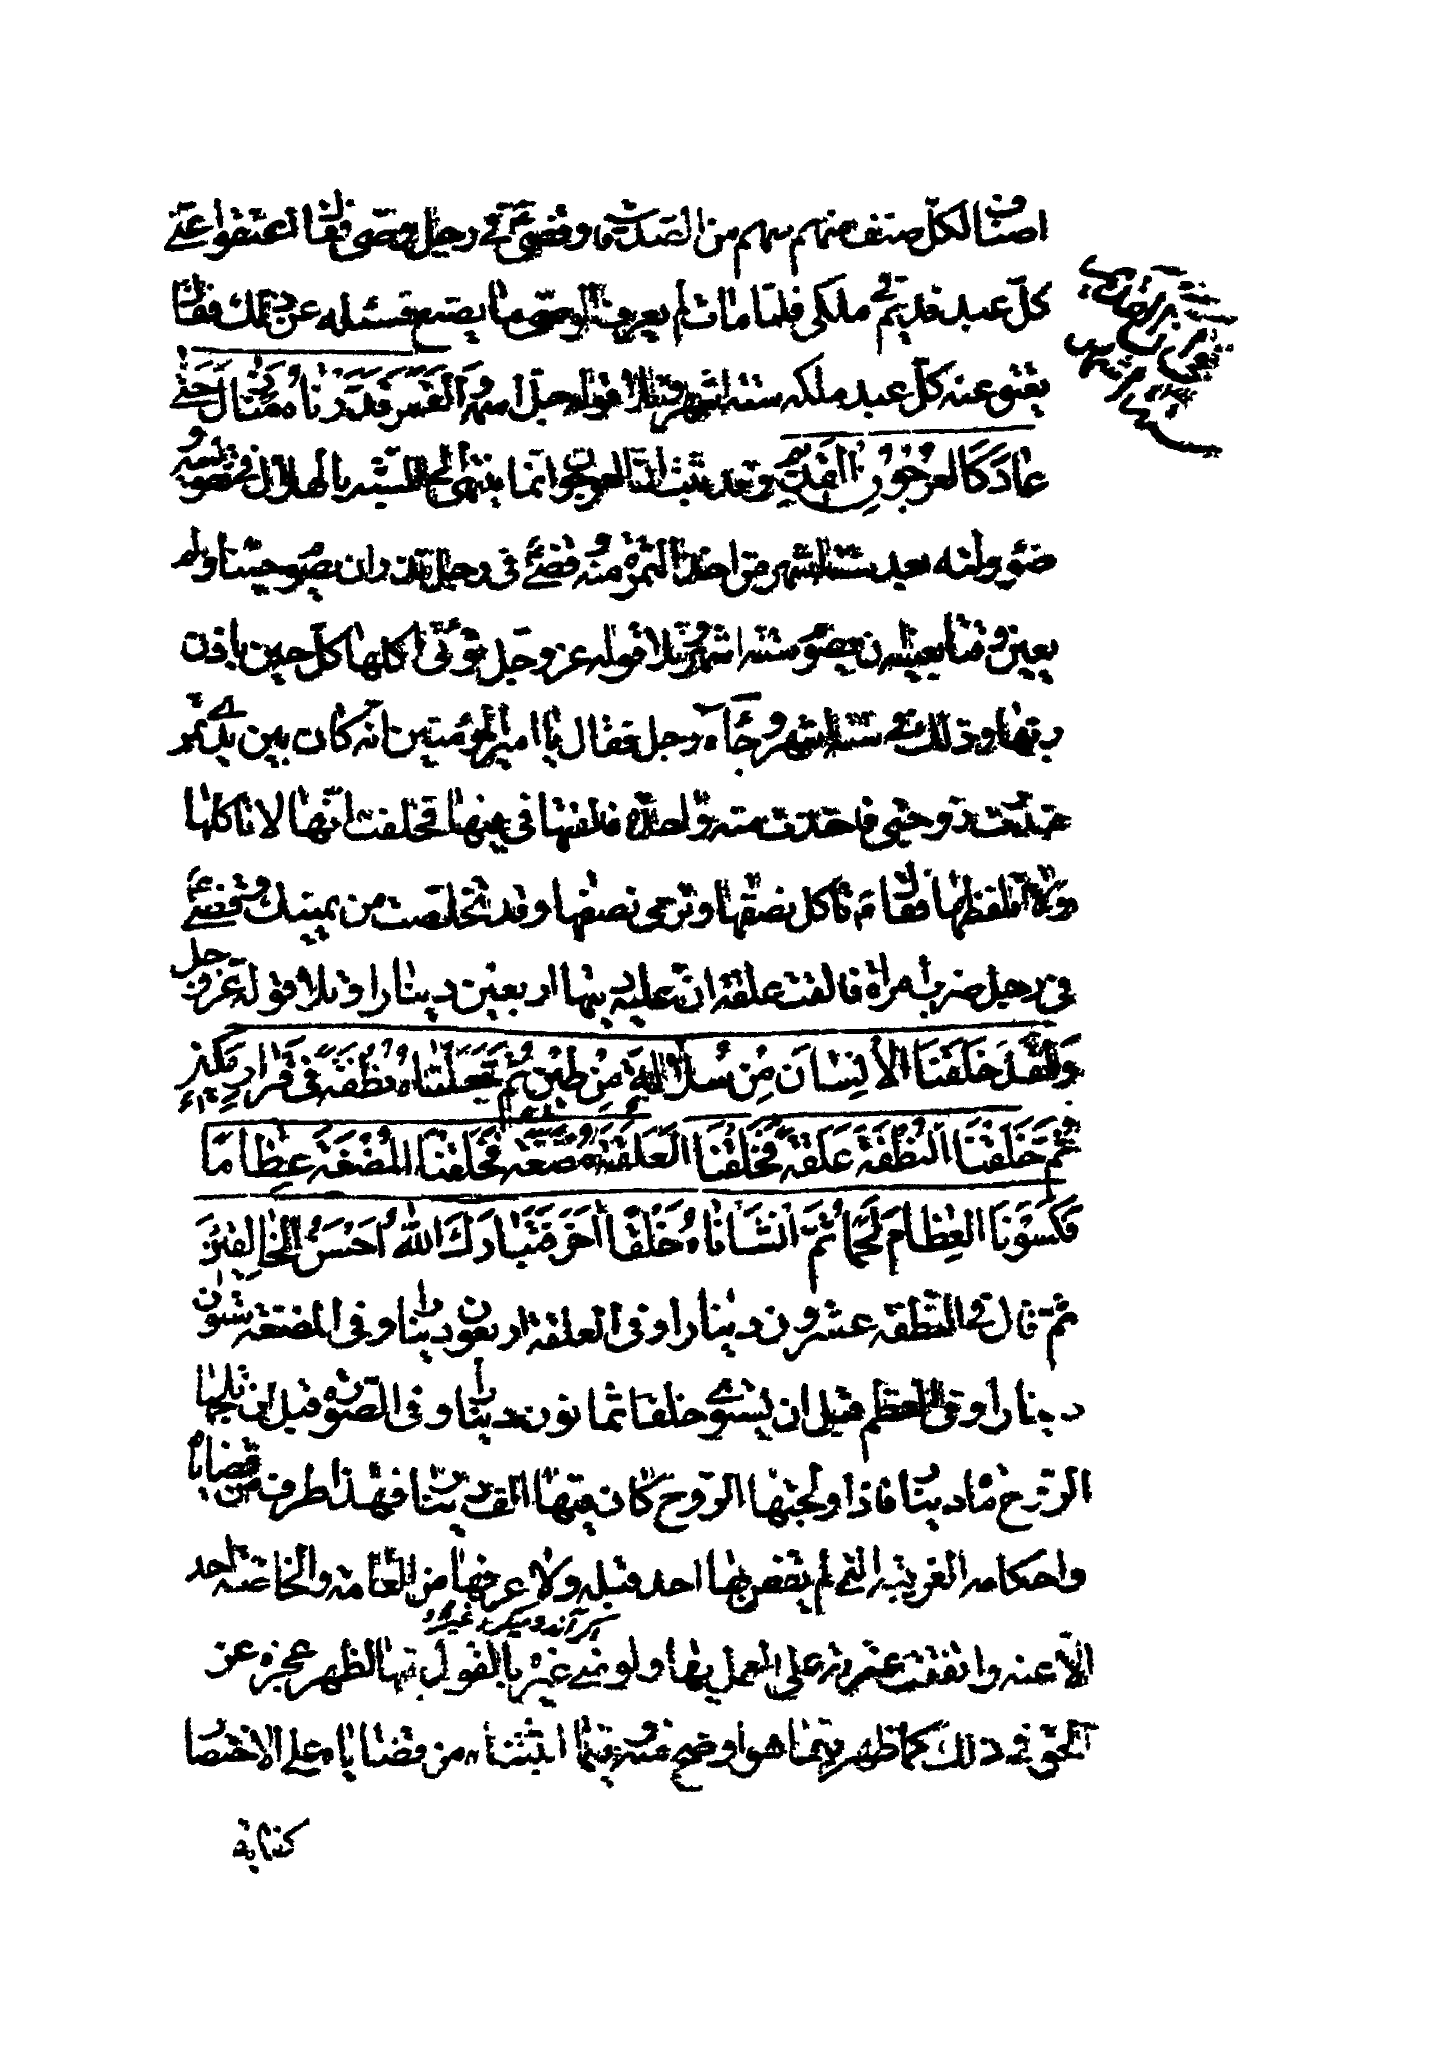 اصناف لكلّ صنف منهم سهم من الصدقات وقضى ع في رجل وصّى فقال اعتقوا عنّي
كلّ عبد قديم ملكي فلما مات لم يعرف الوصّي ما يصنع فسئله عن ذلك فقال
يعتق عنه كلّ عبد ملكه ستة اشهر وتلا قوله جلّ اسمه وَالْقَمَرَ قَدَّرْنَاهُ مَنَازِلَ حَتّى
عَادَ كَالْعُرْجُونِ الْقَدِيمِ وقد ثبت انّ العرجون انما ينتهي الى الشبه بالهلال في تقوسه
ضؤولته بعد ستة اشهر من اخذ الثمرة منه وقضى في رجل نذر ان يصوم حينا ولم
يعين وقتا بعينه ان يصوم ستة اشهر وتلا قوله عز وجلّ تؤتى اكلها كلّ حين باذن
ربها وذلك في ستة اشهر وجآءه رجل فقال يا امير المؤمنين انّه كان بين يدي تمر
فبدرت زوجتي فاخذت منه واحدة فالقتها في فيها فحلفت انّها لا تاكلها
ولا تلفظها فقال ع تاكل نصفها وترمى نصفها وقد تخلصت من يمينك وقضى ع
في رجل ضرب امراة فالقت علقة انّ عليه ديتها اربعين دينارا وتلا قوله عزّ وجل
وَلَقَدْ خَلَقْنَا الْاِنسَانَ مِنْ سُلَالَةٍ مِنْ طِينٍ ثُمَّ جَعَلْنَاهُ نُطْفَةً فِي قَرَارٍ مَكِينٍ
ثُمَّ خَلَقْنَا النُّطْفَةَ عَلَقَةً فَخَلَقْنَا الْعَلَقَةَ مُضْغَةً فَخَلَقْنَا الْمُضْغَةَ عِظَامًا
فَكَسَوْنَا الْعِظَامَ لَحْمًا ثُمَّ اَنْشَانَاهُ خَلْقًا اٰخَرَ فَتَبَارَكَ اللّٰهُ اَحْسَنُ الْخَالِقِينَ
ثمّ قال في النّطفة عشرون دينارا وفي العلقة اربعون دينارا وفي المضغة ستّون
دينارا وفي العظم قبل ان يستوي خلقا ثمانون دينارا وفي الصّورة قبل ان تلجها
الرّوح مائة دينار فاذا ولجتها الرّوح كان فيها الف دينار فهذا طرف من قضاياه
واحكامه الغريبة التي لم يقض بها احد قبله ولا عرفها من العامّة والخاصّة احد
الّا عنه واتفقت عترته على العمل بها ولو مني غيره بالقول فيها لظهر عجزه عن
الحقّ في ذلك كما ظهر فيما هو اوضح منه وفيما اثبتناه من قضاياه على الاختصار
كفاية